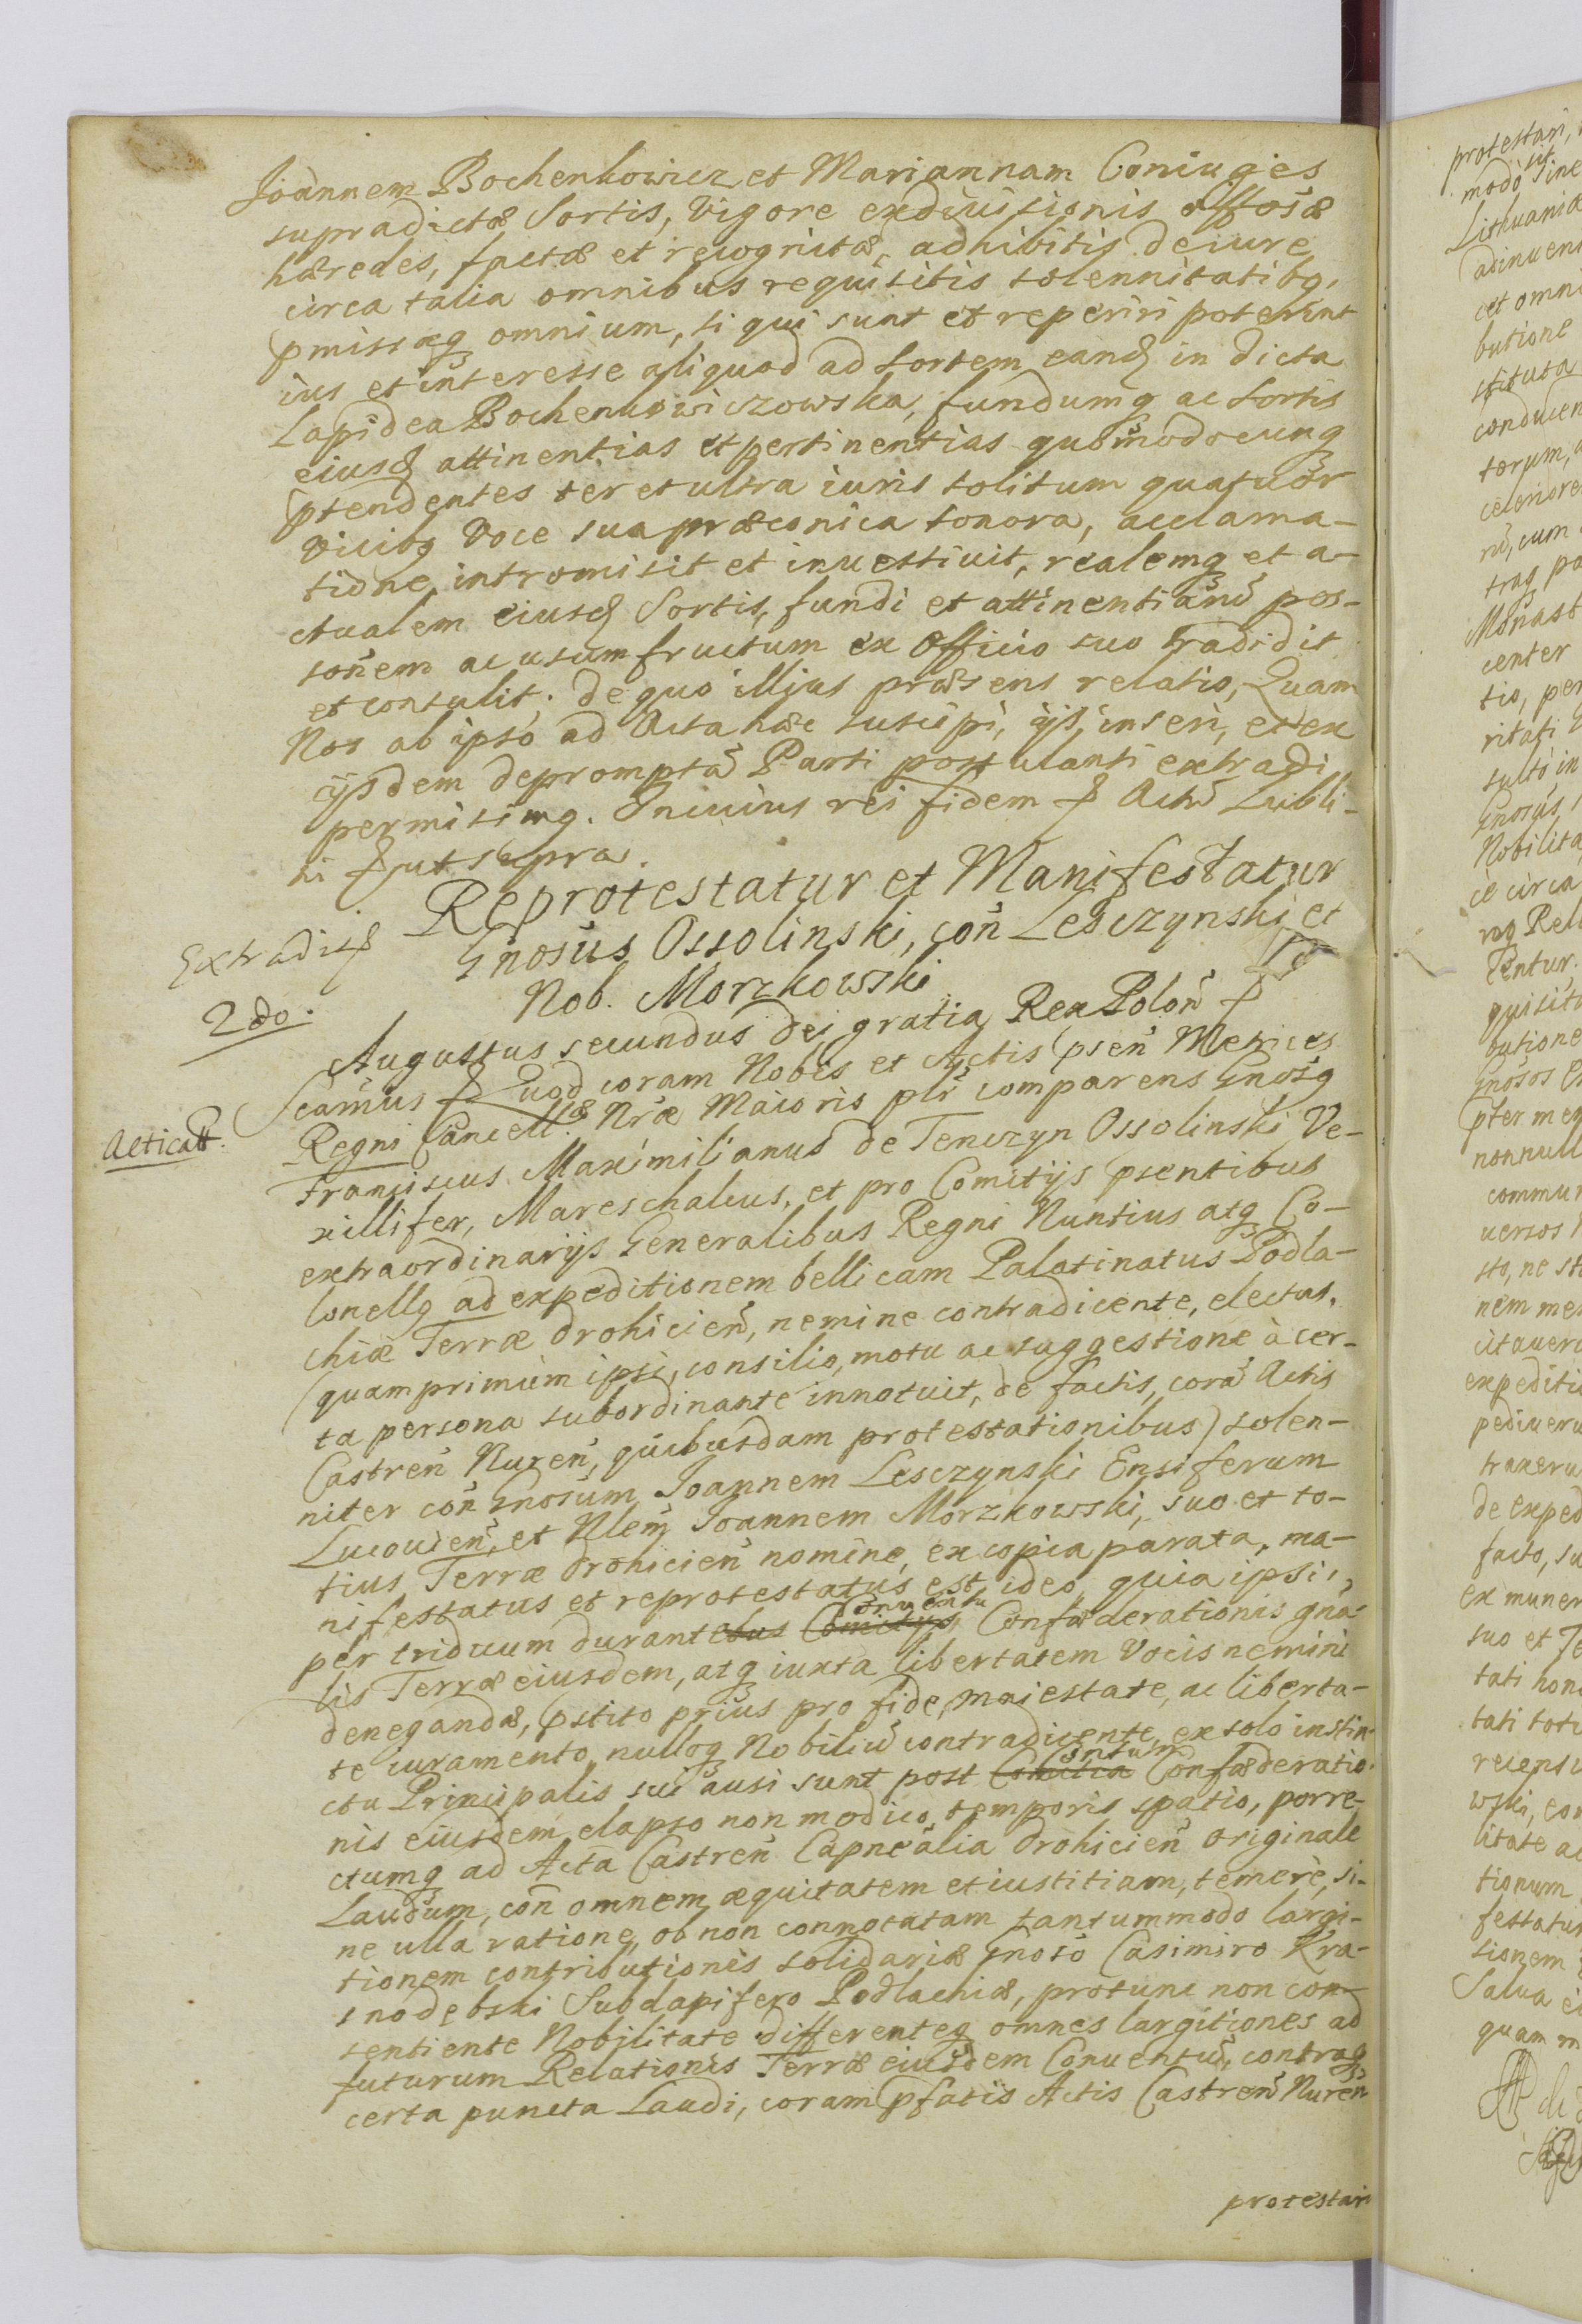 Joannem Bochenkowicz et Mariannam Coniuges
supradictæ Sortis, vigore exdivisionis offosæ
hæredes, factæ et recognitæ, adhibitis de iure
circa talia omnibus requisitis solennitatibq,
pmissisq omnium, si qui sunt et reperiri poterint
ius et interesse aliquod ad sortem eand in dicta
Lapidea Bochenkowiczowska, fundumq ac sortis
eiusd attinentias et pertinentias quomodocunq
ptendentes ter et ultra iuris solitum quatuor
vicibq voce sua præconica sonora, acclama-
tione, intromisit et inuestiuit, realemq et a-
ctualem eiusd Sortis, fundi et attinentiarũ pos-
sonem ac usumfructum ex Officio suo tradidit
et contulit; de quo illius præsens relatio, Quam
Nos ab ipso ad Acta hæc suscipi, ijs, inseri, et ex
ijsdem depromptã Parti postulanti extradi
permisimq. In cuius rei fidem Actũ Lubli-
ni ut supra.
Extradit
Reprotestatur et Manifestatur
Gnosus Ossolinski, coñ Lesczynski et
Nob. Morzkowski
2do.
Augustus secundus Dei gratia Rex Poloñ
Scamus Quod coram Nobis et Actis pseñ Metrices
Acticatt.
Regni Cancell: Nræ Maioris plr comparens Gnosq
Franciscus Maximilianus de Tenczyn Ossolinski Ve-
xillifer, Mareschalcus, et pro Comitijs psentibus
extraordinarijs Generalibus Regni Nuntius atq Co-
lonellq ad expeditionem bellicam Palatinatus Podla-
chiæ Terræ Drohicień, nemine contradicente, electus,
(quam primùm ipsi, consilio, motu ac suggestione à cer-
ta persona subordinante innotuit, de factis, corã Actis
Castreñ Nureñ, quibusdam protestationibus) solen-
niter coñ Gnosum Joannem Lesczynski Ensiferum
Lucovieñ, et Nlem Joannem Morzkowski, suo et to-
tius Terræ Drohicieñ nomine, ex copia parata, ma-
nifestatus et reprotestatus est, ideo, quia ipsi,
per triduum durantebus Comitijs Conuentu Confæderationis gna-
lis Terræ eiusdem, atq iuxta libertatem Vocis nemini
denegandæ, pstito priùs pro fide, maiestate, ac liberta-
te iuramento, nulloq Nobiliũ contradicente, ex solo instin-
ctu Principalis sui ausi sunt post Comitia Conuentum Confæderatio-
nis eiusdem, elapso non modico temporis spatio, porre-
ctumq ad Acta Castreñ Capnealia Drohicieñ originale
Laudum, coñ omnem æquitatem et iustitiam, temerè, si-
ne ulla ratione, ob non connotatam tantummodo largi-
tionem contributionis solidariæ Gnoso Casimiro Kra-
snodębski Subdapifero Podlachiæ, protunc non con-
sentiente Nobilitate differenteq omnes largitiones ad
futurum Relationis Terræ eiusdem Conuentũ, contraq
certa puncta Laudi, coram pfatis Actis Castreñ Nureñ
protestari
protestari,
modò
Lithuaniæ
adinueni
et omni
butione
stituta
conducen
torum,
celeriore
nũ, cum
traq pa
Monast
center
tio, per
ritati
sultò in
Gnosus,
Nobilita
ie circa
roq Rela
Pentur.
quisita
butione
Gnosos
pter meq
nonnull
commun
uersos
sto, ne
nem mea
citauera
expeditio
pediueru
traxeru
de exped
facto, su
ex muner
suo et Te
tati hono
tati toti
recensu
wski, con
litate ac
tionum
festatur
sionem
Salua ei
quam m